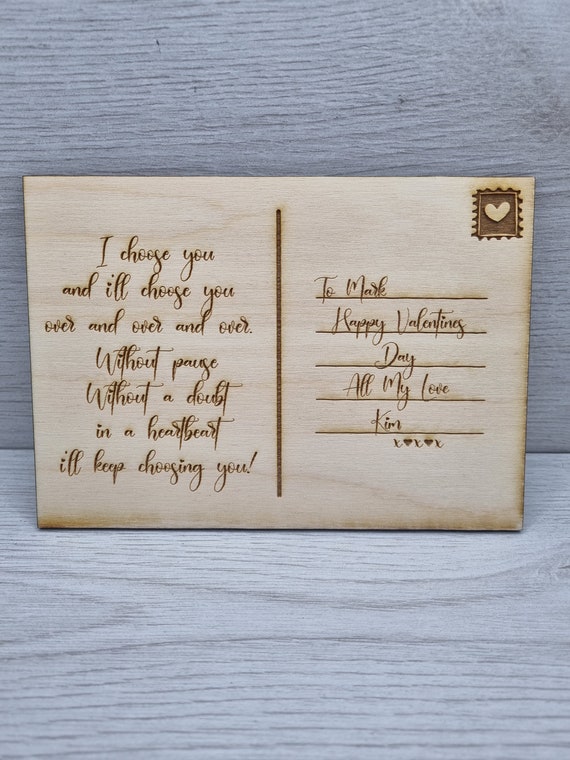 I choose you
and i'll choose you
over and over and over.
Without pause
Without a doubt
in a heartbeart
i'll keep choosing you!
To Mark
Happy Valentines
Day
All My Love
Kim
x♥x♥x